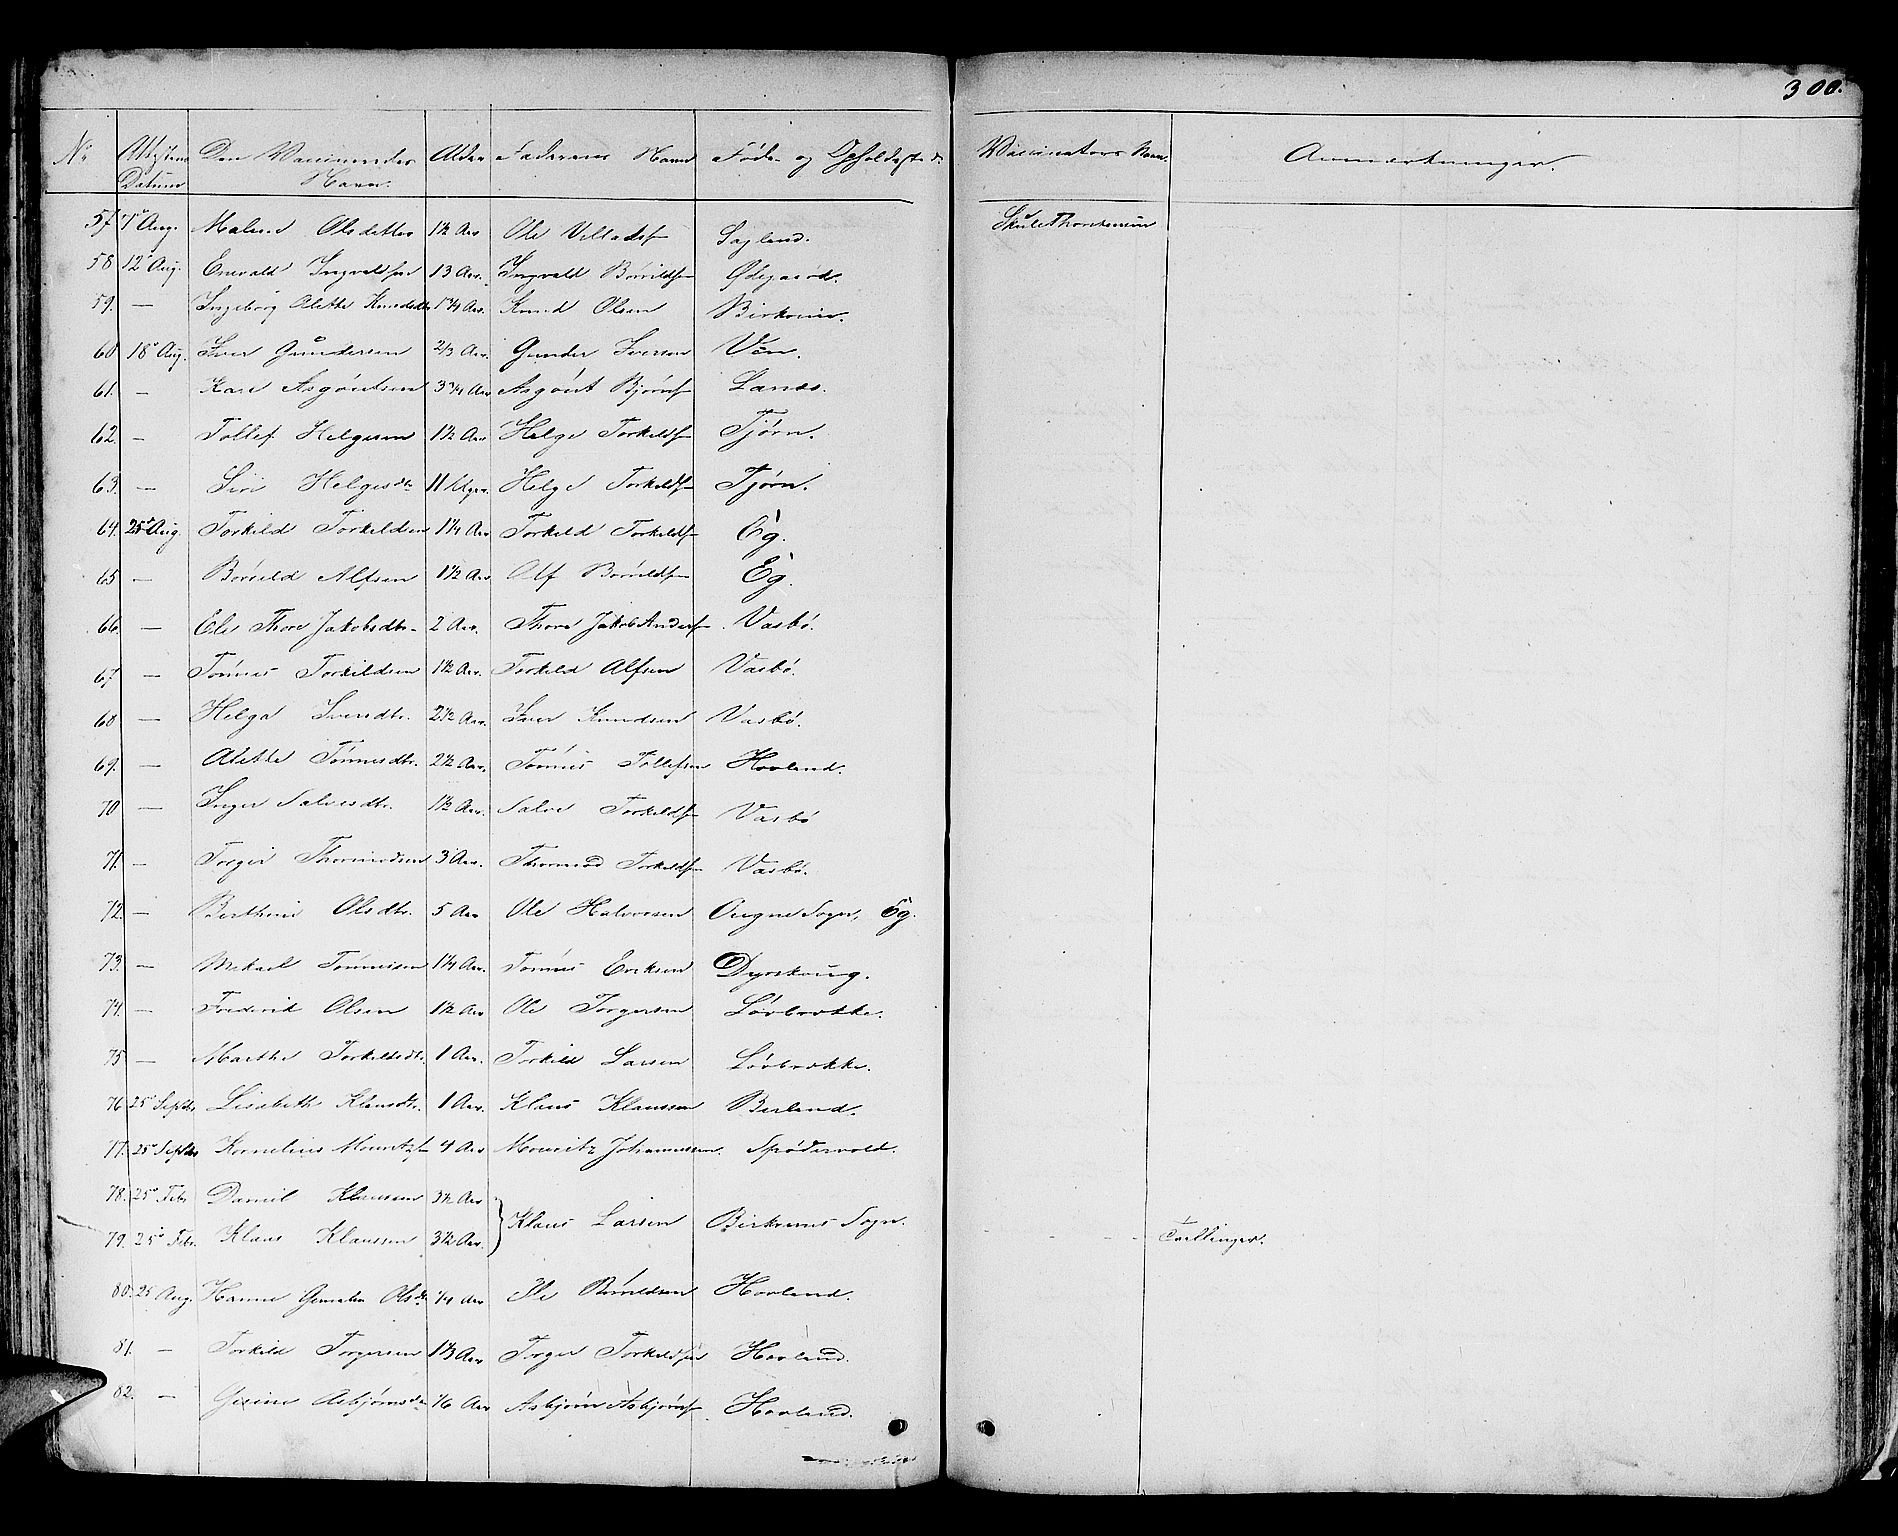 300.
No Attestens Datum Den Vaccineredes Navn. Alder Faderens Navn Føde- og Opholdsst. Vaccinators Navn. Anmærkninger.
57 7de Aug. Malene Olsdatter 1 1/2 Aar Ole Villadsf Sagland. Skule Thorstensen
58 12te Aug. Enevald Ingvaldsen 13 Aar. Ingvald Borrildsf Ødegaard.
59. — Ingeborg Alethe Knudsdtr 1 3/4 Aar. Knud Olsen Birkrem.
60 18de Aug. Iver Gundersen 2/3 Aar. Gunder Iversen Veen.
61. — Kari Asgoutsen 3 3/4 Aar Asgout Bjørnsf Lanes.
62. — Tollef Helgesen 1 1/2 Aar Helge Torkeldsf Tjørn.
63. — Siri Helgesdtr 11 Uger. Helge Torkeldsf Tjørn.
64. 25de Aug. Torkild Torkeldsen 1 1/4 Aar Torkeld Torkeldsf Eg.
65 — Borrild Alfsen 1 1/2 Aar Olf Borrildsf Eg.
66. — Ole Thore Jakobsdtr 2 Aar. Thore Jakob Andersf Vasbø.
67. — Tønnes Torkildsen 1 1/2 Aar. Torkild Alfsen Vasbø.
68 — Helga Iversdtr. 2 1/2 Aar. Iver Knudsen Vasbø.
69. — Alethe Tønnesdtr. 2 1/2 Aar. Tønnes Tollefsen Hovland.
70 — Inger Salvesdtr. 1 1/2 Aar. Salve Torkeldsf Vasbø
71. — Torger Thormodsen 3 Aar. Thormod Torkeldsf Vasbø.
72. — Berthine Olsdtr. 5 Aar Ole Halvorsen Ougne Sogn, Eg.
73. — Mikael Tønnesen 1 1/4 Aar. Tønnes Eriksen Dyrskoug.
74. — Frederik Olsen 1 1/2 Aar Ole Torgersen Løvbrække.
75 — Marthe Torkeldsdtr. 1 Aar. Torkild Larsen Løvbrække.
76 25de Septbr Lisabeth Klausdtr. 1 Aar. Klaus Klaussen Berland.
77. 25de Septbr Kornelius Mouritzsf 4 Aar Mouritz Johannessen. Spødervold.
78. 25de Febr Daniel Klaussen 3 1/2 Aar
Klaus Larsen Birkrems Sogn.
79. 25de Febr. Klaus Klaussen 3 1/2 Aar. Tvillinger.
80. 25 Aug. Hanne Olsdtr 1/4 Aar Ole Borrildsen Hovland.
81. — Torkild Torgersen 1 1/3 Aar Torger Torkeldsen Hovland.
82. — Gesine Asbjørnsdtr 1/6 Aar Asbjørn Asbjørnsf Hovland.